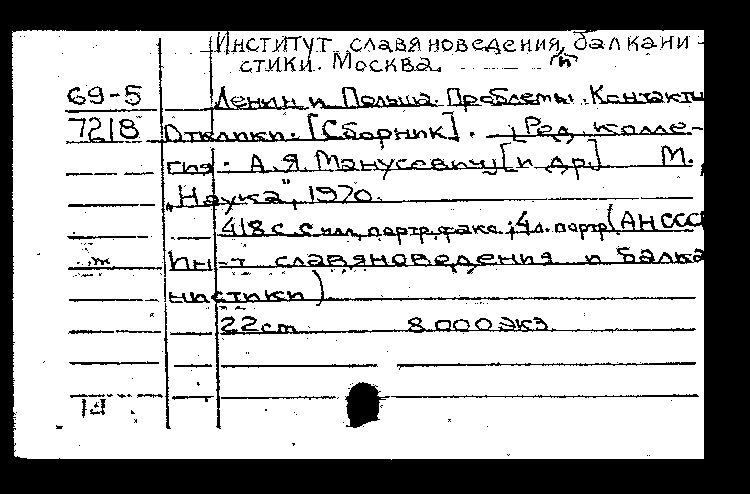 Институт славяноведения, балкани-
стики. Москва.
69-5 Ленин и Польша. Проблемы. Контакты
7218 Отклики. [Сборник]. [Ред. колле-
гия: А.Я. Манусевич [и др.] М.,
„Наука", 1970.
418 с. с илл., портр., факс.; 4 л. портр. (АН СССР
Ин-т славяноведения и балка
нистики)
22 cm 8.000 экз.